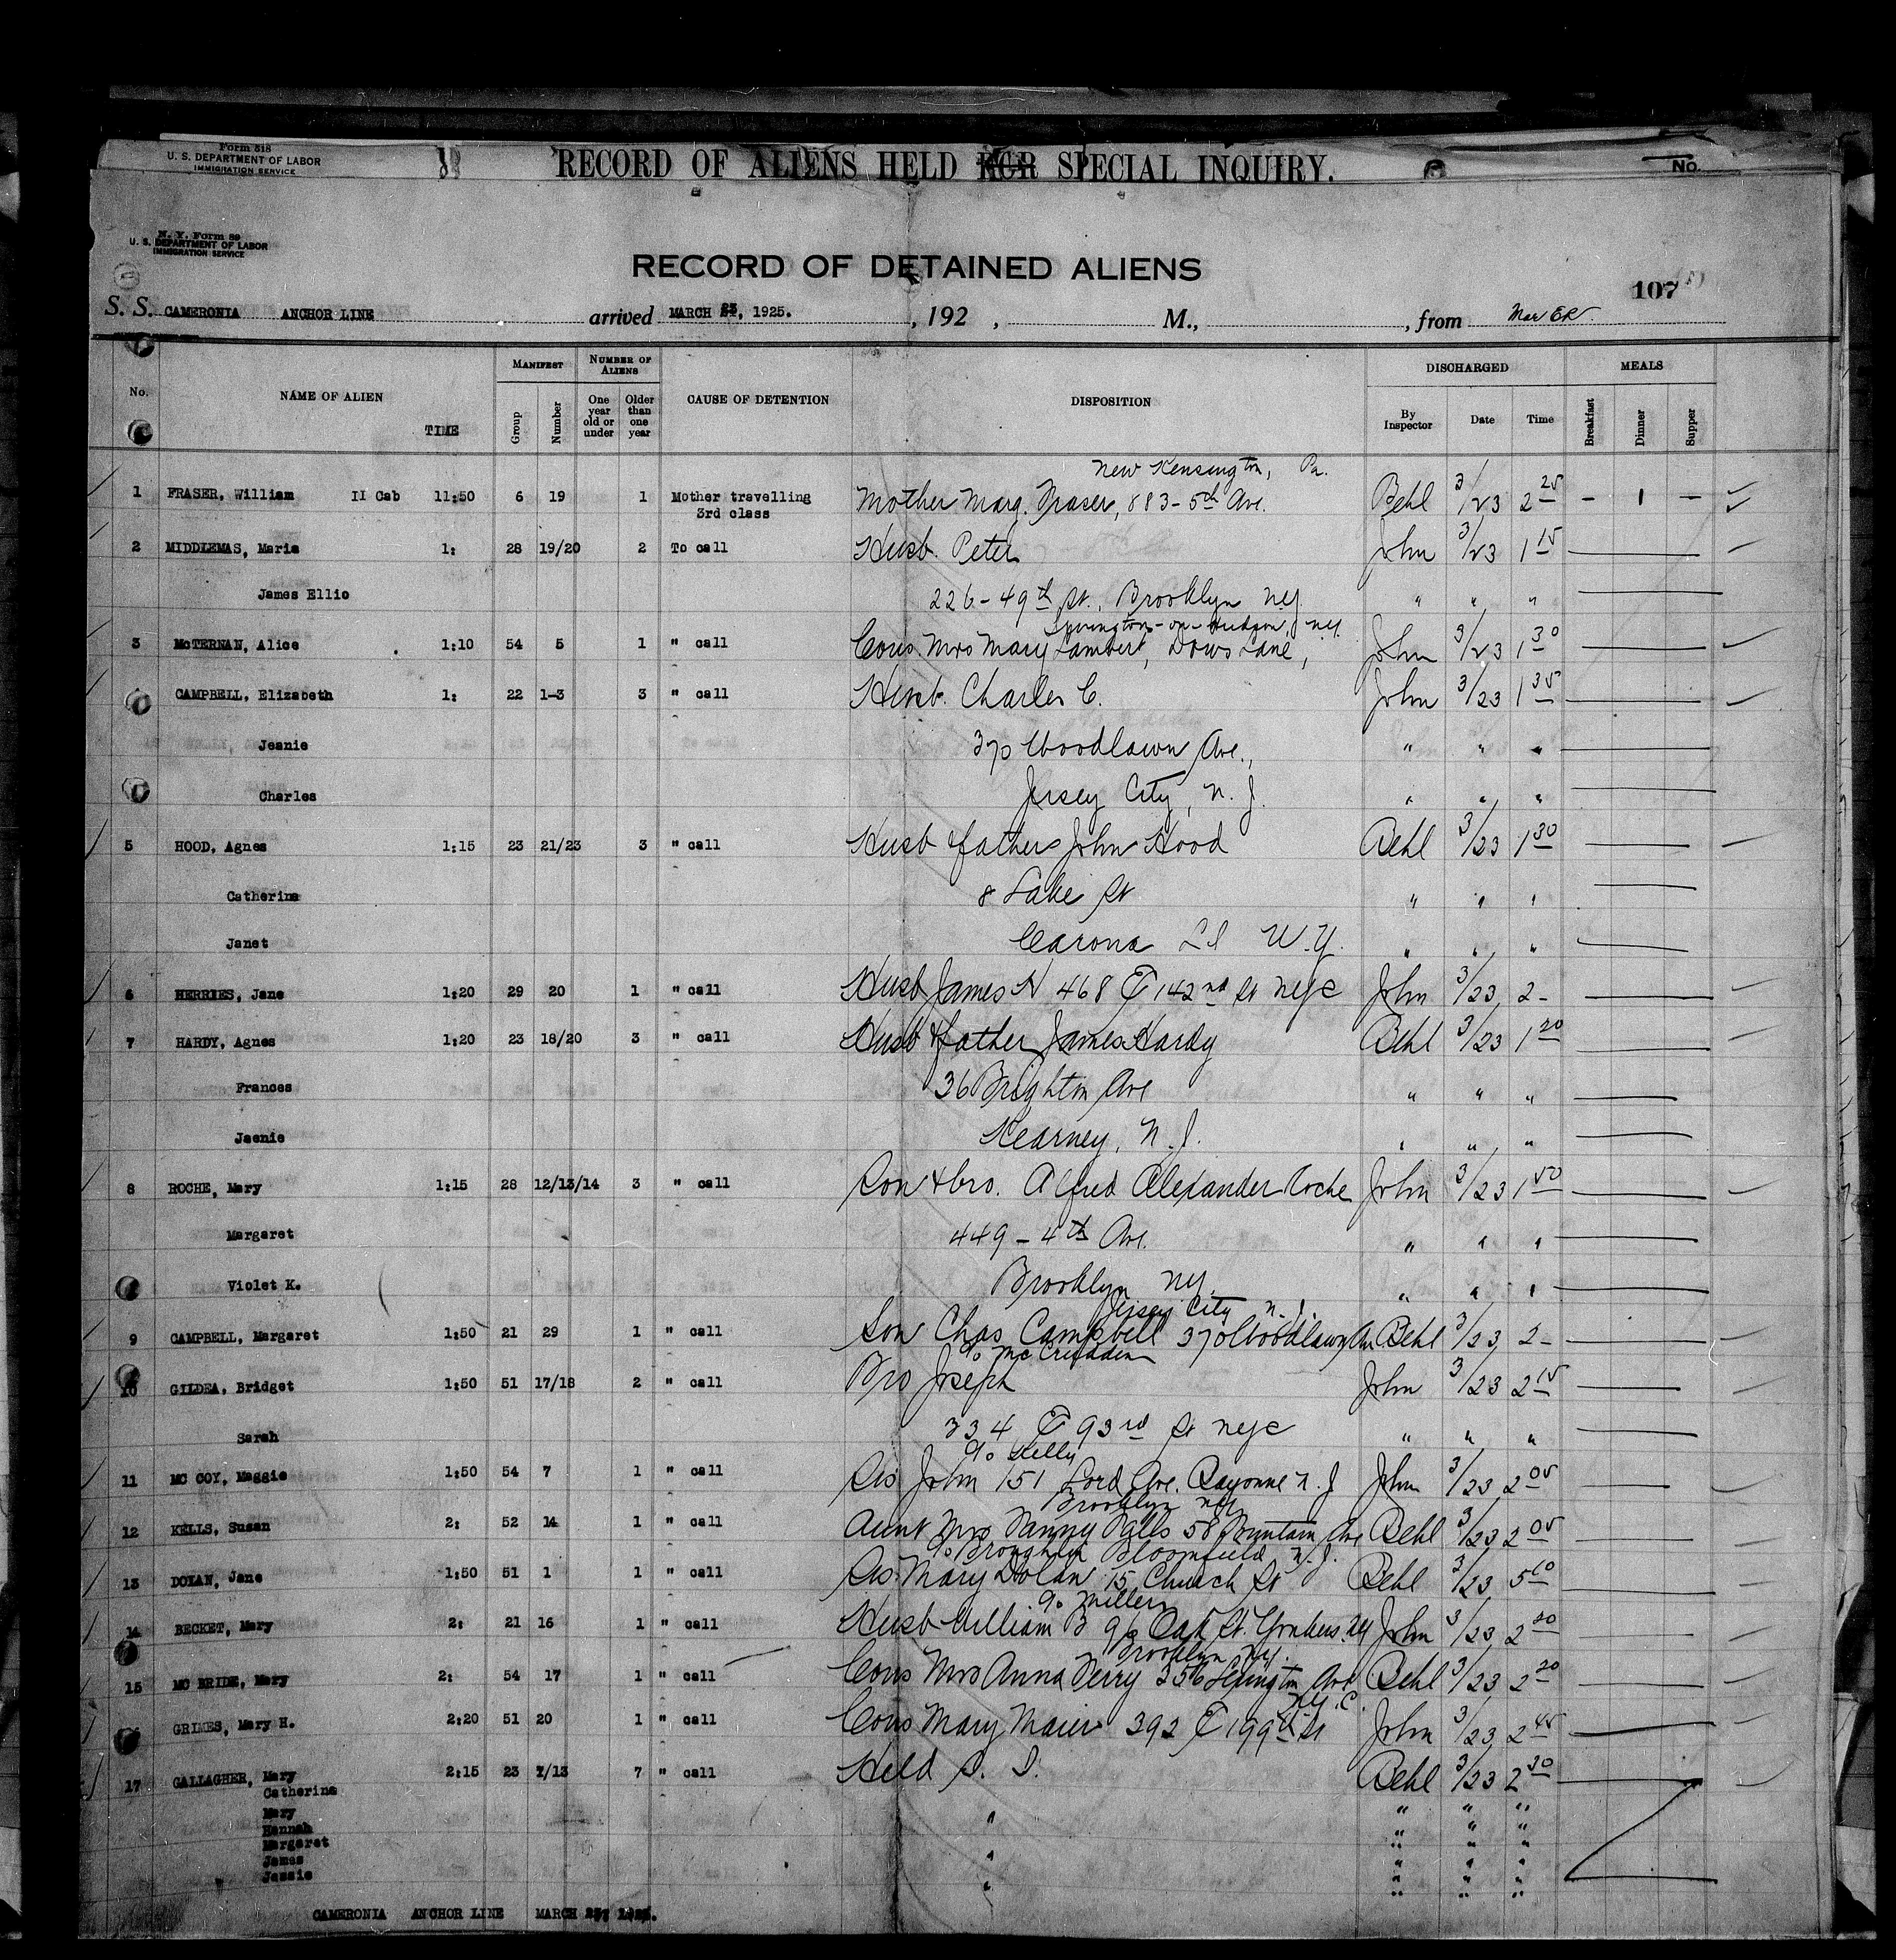 Form 518
U. S. DEPARTMENT OF LABOR
IMMIGRATION SERVICE
RECORD OF ALIENS HELD FOR SPECIAL INQUIRY.
No.
N. Y. Form 89
U. S. DEPARTMENT OF LABOR
IMMIGRATION SERVICE
RECORD OF DETAINED ALIENS
107
S. S. CAMERONIA ANCHOR LINE arrived MARCH 23, 1925. , 192 , M., , from
No. NAME OF ALIEN TIME MANIFEST Group Number NUMBER OF ALIENS One year old or under Older than one year CAUSE OF DETENTION DISPOSITION DISCHARGED By Inspector Date Time MEALS Breakfast Dinner Supper
New Kensington, Pa.
1 FRASER, William II Cab 11:50 6 19 1 Mother travelling Mother Marg. Fraser, 883-5th Ave. Behl 3/23 2 25 - 1 -
3rd class
2 MIDDLEMAS, Maria 1: 28 19/20 2 To call Husb. Peter John 3/23 1 15
James Ellio 226-49th St., Brooklyn N.Y. " " "
Irvington-on-Hudson, N.Y.
3 McTERNAN, Alice 1:10 54 5 1 " call Cous. Mrs Mary Lambert, Dows Lane, John 3/23 1 30
CAMPBELL, Elizabeth 1: 22 1-3 3 " call Husb. Charles C. John 3/23 1 35
Jeanie 370 Woodlawn Ave., " " "
Charles Jersey City, N. J. " " "
5 HOOD, Agnes 1:15 23 21/23 3 " call Husb father John Hood Behl 3/23 1 30
Catherine 8 Lake St " " "
Janet Carona L I N.Y. " " "
6 HERRIES, Jane 1:20 29 20 1 " call Husb James H 468 E 142nd St NYC John 3/23 2-
7 HARDY, Agnes 1:20 23 18/20 3 " call Husb & father James Hardy Behl 3/23 1 20
Frances 36 Brighton Ave " " "
Jaenie Kearney, N.J. " " "
8 ROCHE, Mary 1:15 28 12/13/14 3 " call Son & bro. Alfred Alexander Roche John 3/23 1 50
Margaret 449-4th Ave. " " "
Violet K. Brooklyn NY. " " "
Jersey City N. J.
9 CAMPBELL, Margaret 1:50 21 29 1 " call Son Chas Campbell 370 Woodlawn Av Behl 3/23 2-
c/o McCrudden
10 GILDEA, Bridget 1:50 51 17/18 2 " call Bro Joseph John 3/23 2 15
Sarah 334 E 93rd St NYC " " "
c/o Kelly
11 MC COY, Maggie 1:50 54 7 1 " call Sis John 151 Lord Ave. Bayonne N.J John 3/23 2 05
Brooklyn NY
12 KELLS, Susan 2: 52 14 1 " call Aunt Mrs Fanny Falls 58 Ave Behl 3/23 2 05
c/o Bloomfield N.J.
13 DOLAN, Jane 1:50 51 1 1 " call Sis Mary Dolan 15 Church St Behl 3/23 5
c/o Miller
14 BECKET, Mary 2: 21 16 1 " call Husb William B 96 Oak St. Yonkers NY John 3/23 2
Brooklyn NY.
15 MC BRIDE, Mary 2: 54 17 1 " call Cous Mrs Anna 356 Lexington Ave Behl 3/23 2 20
NY.C.
GRIMES, Mary H. 2:20 51 20 1 " call Cous Mary Maier 392 E 199th St John 3/23 2 45
17 GALLAGHER, Mary 2:15 23 7/13 7 " call Held S. I. Behl 3/23 2 30
Catherine
Mary " " " "
Hannah " " "
Margaret " " "
James " " " "
Jessie " " " "
CAMERONIA ANCHOR LINE MARCH 23, 1925.